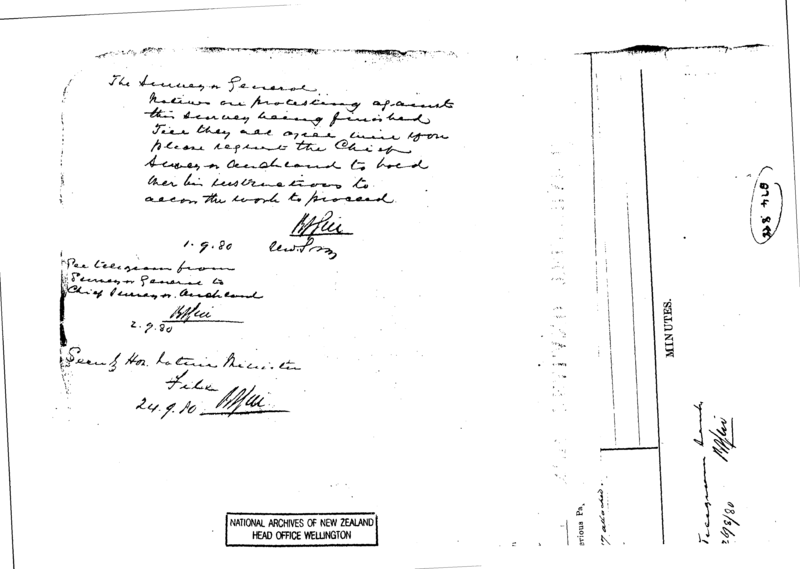 The Surveyor General
Natives are protesting against
this survey being finished
Till they all agree will you
please request the Chief
Surveyor Auckland to hold
over his instructions to
allow the work to proceed.
1.9.80
See telegram from
Surveyor General to
Chief Surveyor Auckland
2.9.80
Seen by Hon. Native Minister
File
24.9.80
NATIONAL ARCHIVES OF NEW ZEALAND
HEAD OFFICE WELLINGTON
MINUTES.
Telegram sent
26/8/80